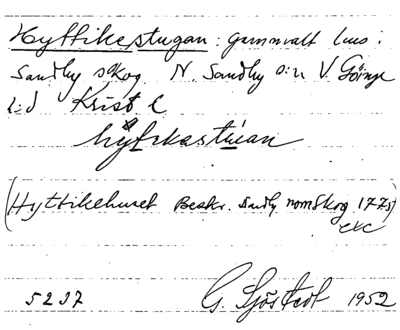 Hyttikestugan: gammalt hus i
Sandby skog N. Sandby s:n V. Göinge
h:d Krist l
hytikastuan
(Hyttikehuset Beskr. Sandby skog 1775)
etc
5237 G. Sjöstedt 1952